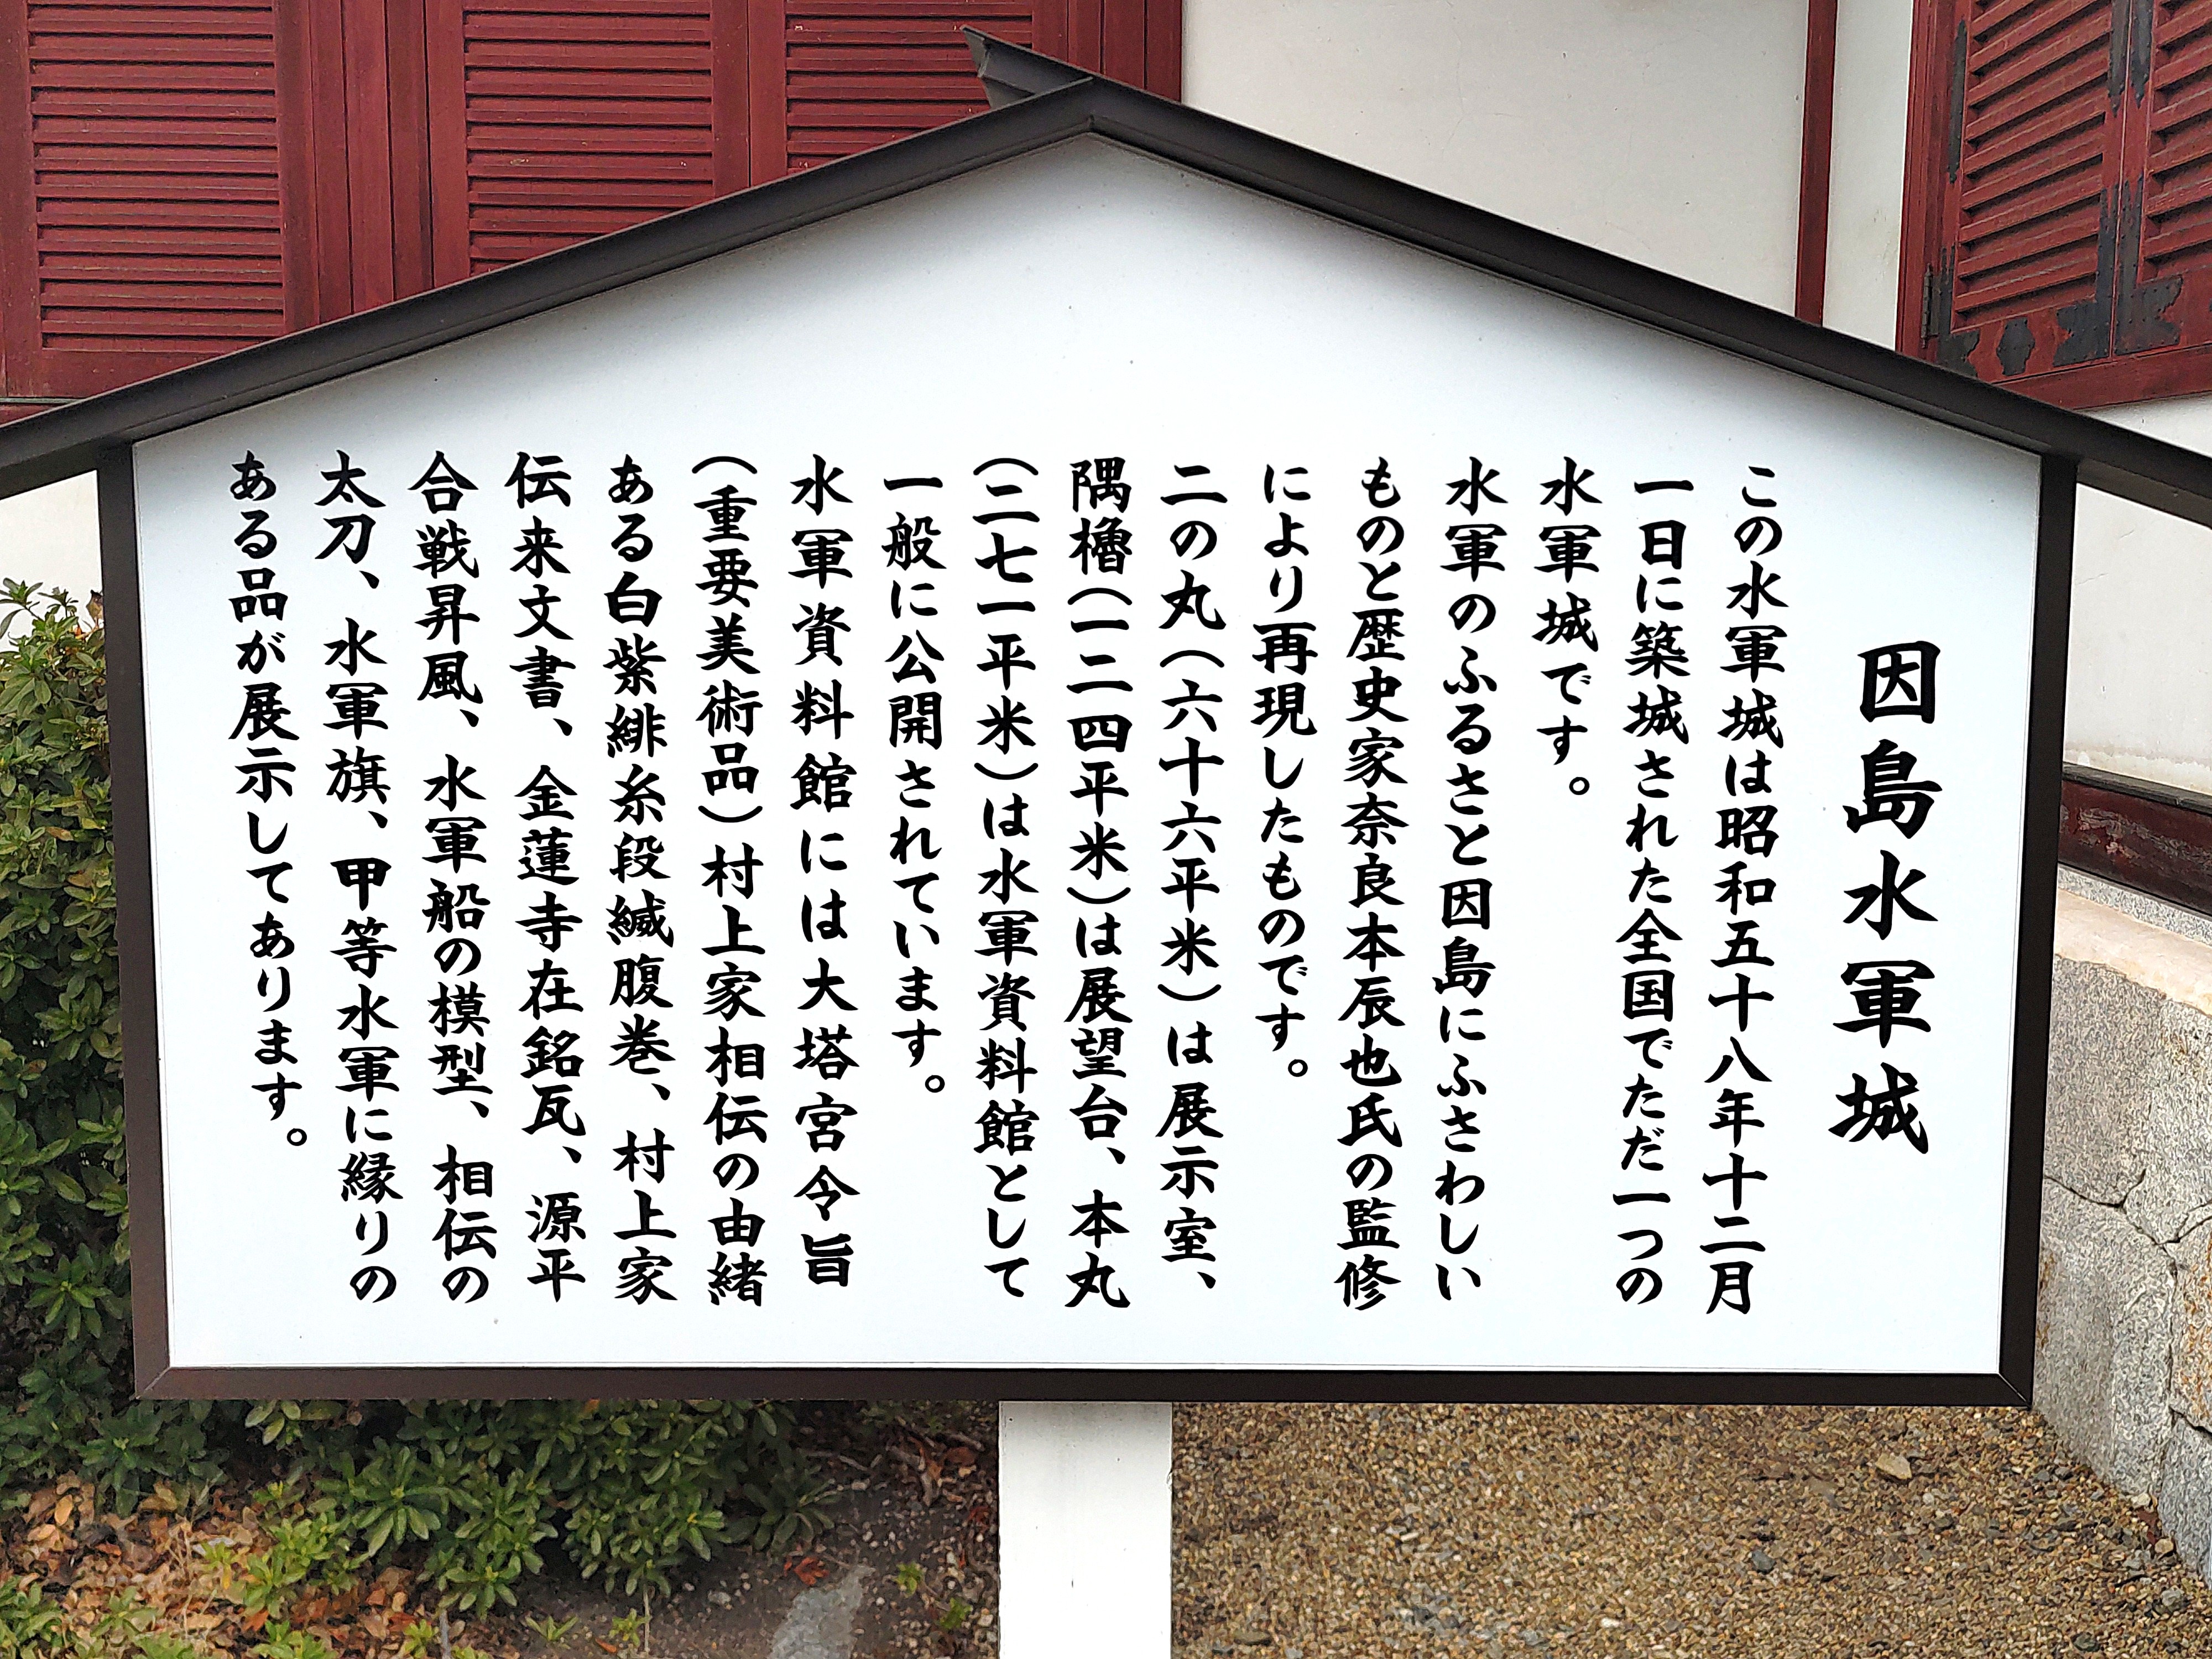 因島水軍城
この水軍城は昭和五十八年十二月
一日に築城された全国でただ一つの
水軍城です。
水軍のふるさと因島にふさわしい
ものと歴史家奈良本辰也氏の監修
により再現したものです。
二の丸(六十六平米)は展示室、
隅櫓(一二四平米)は展望台、本丸
(二七一平米)は水軍資料館として
一般に公開されています。
水軍資料館には大塔宮令旨
(重要美術品)村上家相伝の由緒
ある白紫緋糸段縅腹巻、村上家
伝来文書、金蓮寺在銘瓦、源平
合戦昇風、水軍船の模型、相伝の
太刀、水軍旗、甲等水軍に縁りの
ある品が展示してあります。